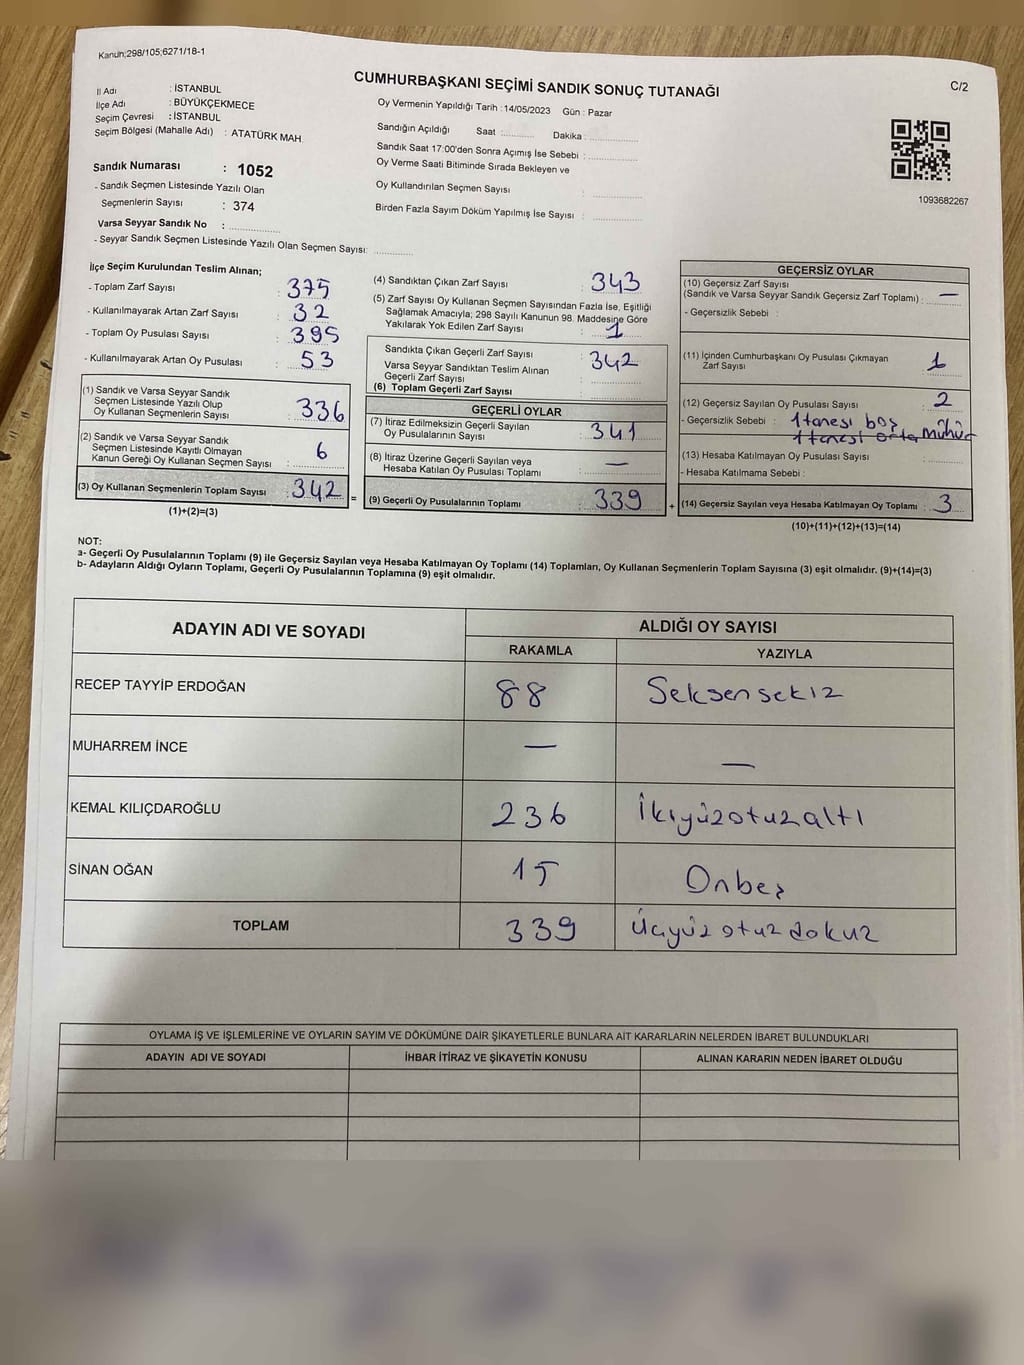 Kanun;298/105;6271/18-1
CUMHURBAŞKANI SEÇİMİ SANDIK SONUÇ TUTANAĞI
C/2
İl Adı : İSTANBUL
İlçe Adı : BÜYÜKÇEKMECE
Seçim Çevresi : İSTANBUL
Seçim Bölgesi (Mahalle Adı) : ATATÜRK MAH.
Sandık Numarası : 1052
- Sandık Seçmen Listesinde Yazılı Olan
Seçmenlerin Sayısı : 374
Varsa Seyyar Sandık No :
- Seyyar Sandık Seçmen Listesinde Yazılı Olan Seçmen Sayısı:
Oy Vermenin Yapıldığı Tarih : 14/05/2023 Gün : Pazar
Sandığın Açıldığı Saat : Dakika :
Sandık Saat 17:00'den Sonra Açımış İse Sebebi :
Oy Verme Saati Bitiminde Sırada Bekleyen ve
Oy Kullandırılan Seçmen Sayısı :
Birden Fazla Sayım Döküm Yapılmış İse Sayısı :
1093682267
İlçe Seçim Kurulundan Teslim Alınan;
- Toplam Zarf Sayısı : 375
- Kullanılmayarak Artan Zarf Sayısı : 32
- Toplam Oy Pusulası Sayısı : 395
- Kullanılmayarak Artan Oy Pusulası : 53
(1) Sandık ve Varsa Seyyar Sandık
Seçmen Listesinde Yazılı Olup
Oy Kullanan Seçmenlerin Sayısı : 336
(2) Sandık ve Varsa Seyyar Sandık
Seçmen Listesinde Kayıtlı Olmayan
Kanun Gereği Oy Kullanan Seçmen Sayısı : 6
(3) Oy Kullanan Seçmenlerin Toplam Sayısı : 342 =
(1)+(2)=(3)
(4) Sandıktan Çıkan Zarf Sayısı : 343
(5) Zarf Sayısı Oy Kullanan Seçmen Sayısından Fazla İse, Eşitliği
Sağlamak Amacıyla; 298 Sayılı Kanunun 98. Maddesine Göre
Yakılarak Yok Edilen Zarf Sayısı : 1
Sandıkta Çıkan Geçerli Zarf Sayısı : 342
Varsa Seyyar Sandıktan Teslim Alınan
Geçerli Zarf Sayısı :
(6) Toplam Geçerli Zarf Sayısı :
GEÇERLİ OYLAR
(7) İtiraz Edilmeksizin Geçerli Sayılan
Oy Pusulalarının Sayısı : 341
(8) İtiraz Üzerine Geçerli Sayılan veya
Hesaba Katılan Oy Pusulası Toplamı : —
(9) Geçerli Oy Pusulalarının Toplamı : 339 +
GEÇERSİZ OYLAR
(10) Geçersiz Zarf Sayısı
(Sandık ve Varsa Seyyar Sandık Geçersiz Zarf Toplamı) : —
- Geçersizlik Sebebi :
(11) İçinden Cumhurbaşkanı Oy Pusulası Çıkmayan
Zarf Sayısı : 1
(12) Geçersiz Sayılan Oy Pusulası Sayısı : 2
- Geçersizlik Sebebi : 1 tanesi boş
1 tanesi orta mühür
(13) Hesaba Katılmayan Oy Pusulası Sayısı :
- Hesaba Katılmama Sebebi :
(14) Geçersiz Sayılan veya Hesaba Katılmayan Oy Toplamı : 3
(10)+(11)+(12)+(13)=(14)
NOT:
a- Geçerli Oy Pusulalarının Toplamı (9) ile Geçersiz Sayılan veya Hesaba Katılmayan Oy Toplamı (14) Toplamları, Oy Kullanan Seçmenlerin Toplam Sayısına (3) eşit olmalıdır. (9)+(14)=(3)
b- Adayların Aldığı Oyların Toplamı, Geçerli Oy Pusulalarının Toplamına (9) eşit olmalıdır.
ADAYIN ADI VE SOYADI
ALDIĞI OY SAYISI
RAKAMLA YAZIYLA
RECEP TAYYİP ERDOĞAN 88 Seksensekiz
MUHARREM İNCE — —
KEMAL KILIÇDAROĞLU 236 İkiyüzotuzaltı
SİNAN OĞAN 15 Onbeş
TOPLAM 339 Üçyüzotuzdokuz
OYLAMA İŞ VE İŞLEMLERİNE VE OYLARIN SAYIM VE DÖKÜMÜNE DAİR ŞİKAYETLERLE BUNLARA AİT KARARLARIN NELERDEN İBARET BULUNDUKLARI
ADAYIN ADI VE SOYADI İHBAR İTİRAZ VE ŞİKAYETİN KONUSU ALINAN KARARIN NEDEN İBARET OLDUĞU